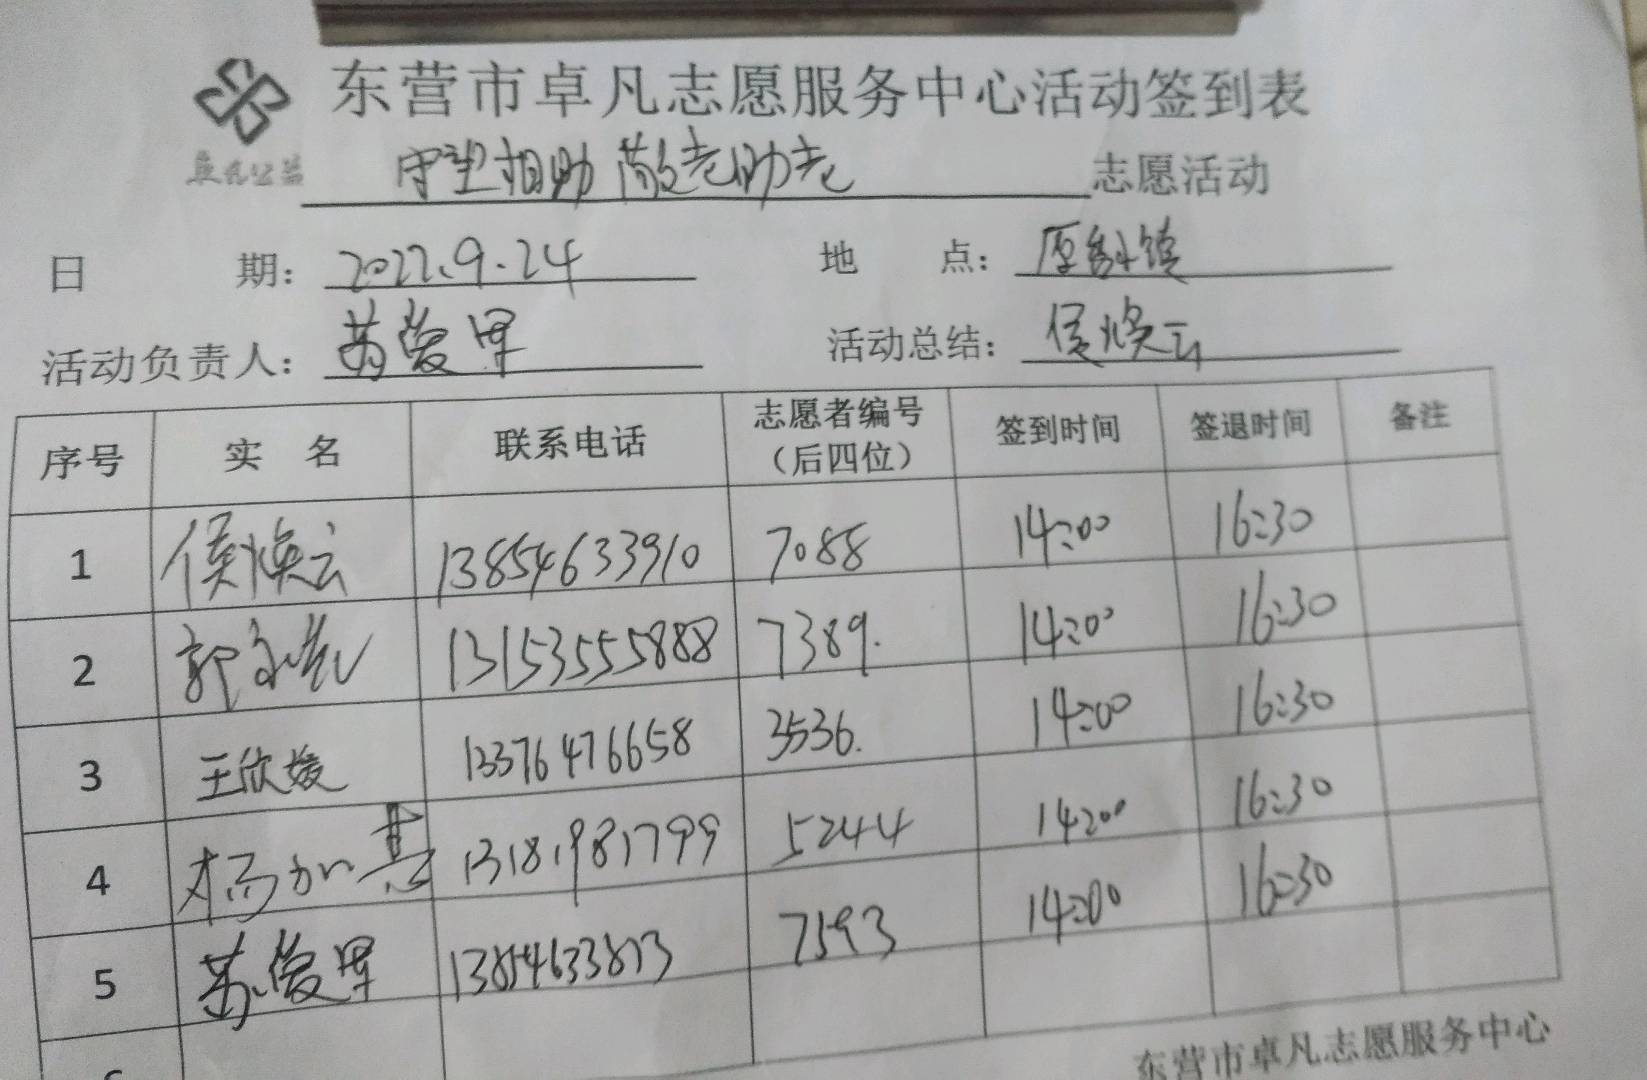 东营市卓凡志愿服务中心活动签到表
卓凡公益
守望相助 敬老助老 志愿活动
日 期: 2022.9.24 地 点:
活动负责人: 苏俊军 活动总结: 侯焕云
序号 实 名 联系电话 志愿者编号(后四位) 签到时间 签退时间 备注
1 侯焕云 13854633910 7088 14:00 16:30
2 郭 13153555888 7389. 14:00 16:30
3 王欣媛 13376476658 3536. 14:00 16:30
4 杨加喜 13181981799 5244 14:00 16:30
5 苏俊军 13854633873 7593 14:00 16:30
东营市卓凡志愿服务中心